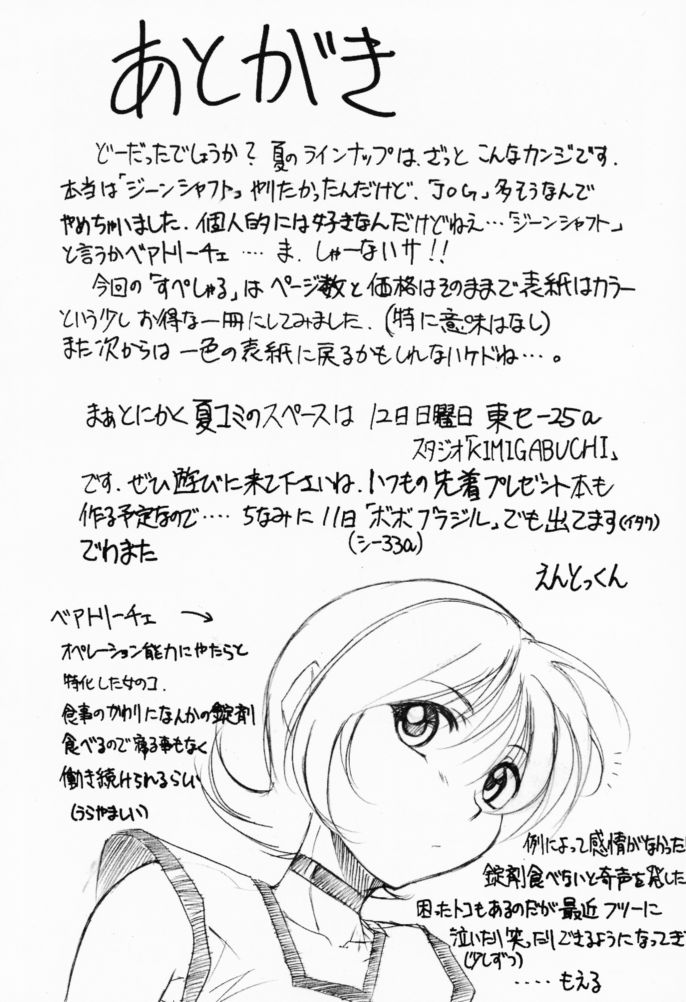 あとがき
どーだったでしょうか？夏のラインナップは、ざっとこんなカンジです.
本当は「ジーンシャフト」やりたかったんだけど、「JOG」多そうなんで
やめちゃいました.個人的には好きなんだけどねえ…「ジーンシャフト」
と言うかベアトリーチェ …. ま、しゃーないサ!!
今回の「すぺしゃる」はページ数と価格はそのままで表紙はカラー
という少しお得な一冊にしてみました.(特に意味はなし)
また次からは一色の表紙に戻るかもしれないケドね…。
まぁとにかく夏コミのスペースは 12日日曜日 東セー25a
スタジオ「KIMIGABUCHI」
です.ぜひ遊びに来て下さいね.いつもの先着プレゼント本も
作る予定なので…. ちなみに11日「ボボブラジル」でも出てます(イタク)
(シー33a)
でわまた
えんとっくん
ベアトリーチェ →
オペレーション能力にやたらと
特化した女のコ.
食事のかわりになんかの錠剤
食べるので寝る事もなく
働き続けられるらしい
(うらやましい)
例によって感情がなかった
錠剤食べないと奇声を発した
困ったトコもあるのだが最近フツーに
泣いたり笑ったりできるようになってき
(少しずつ)
….もえる